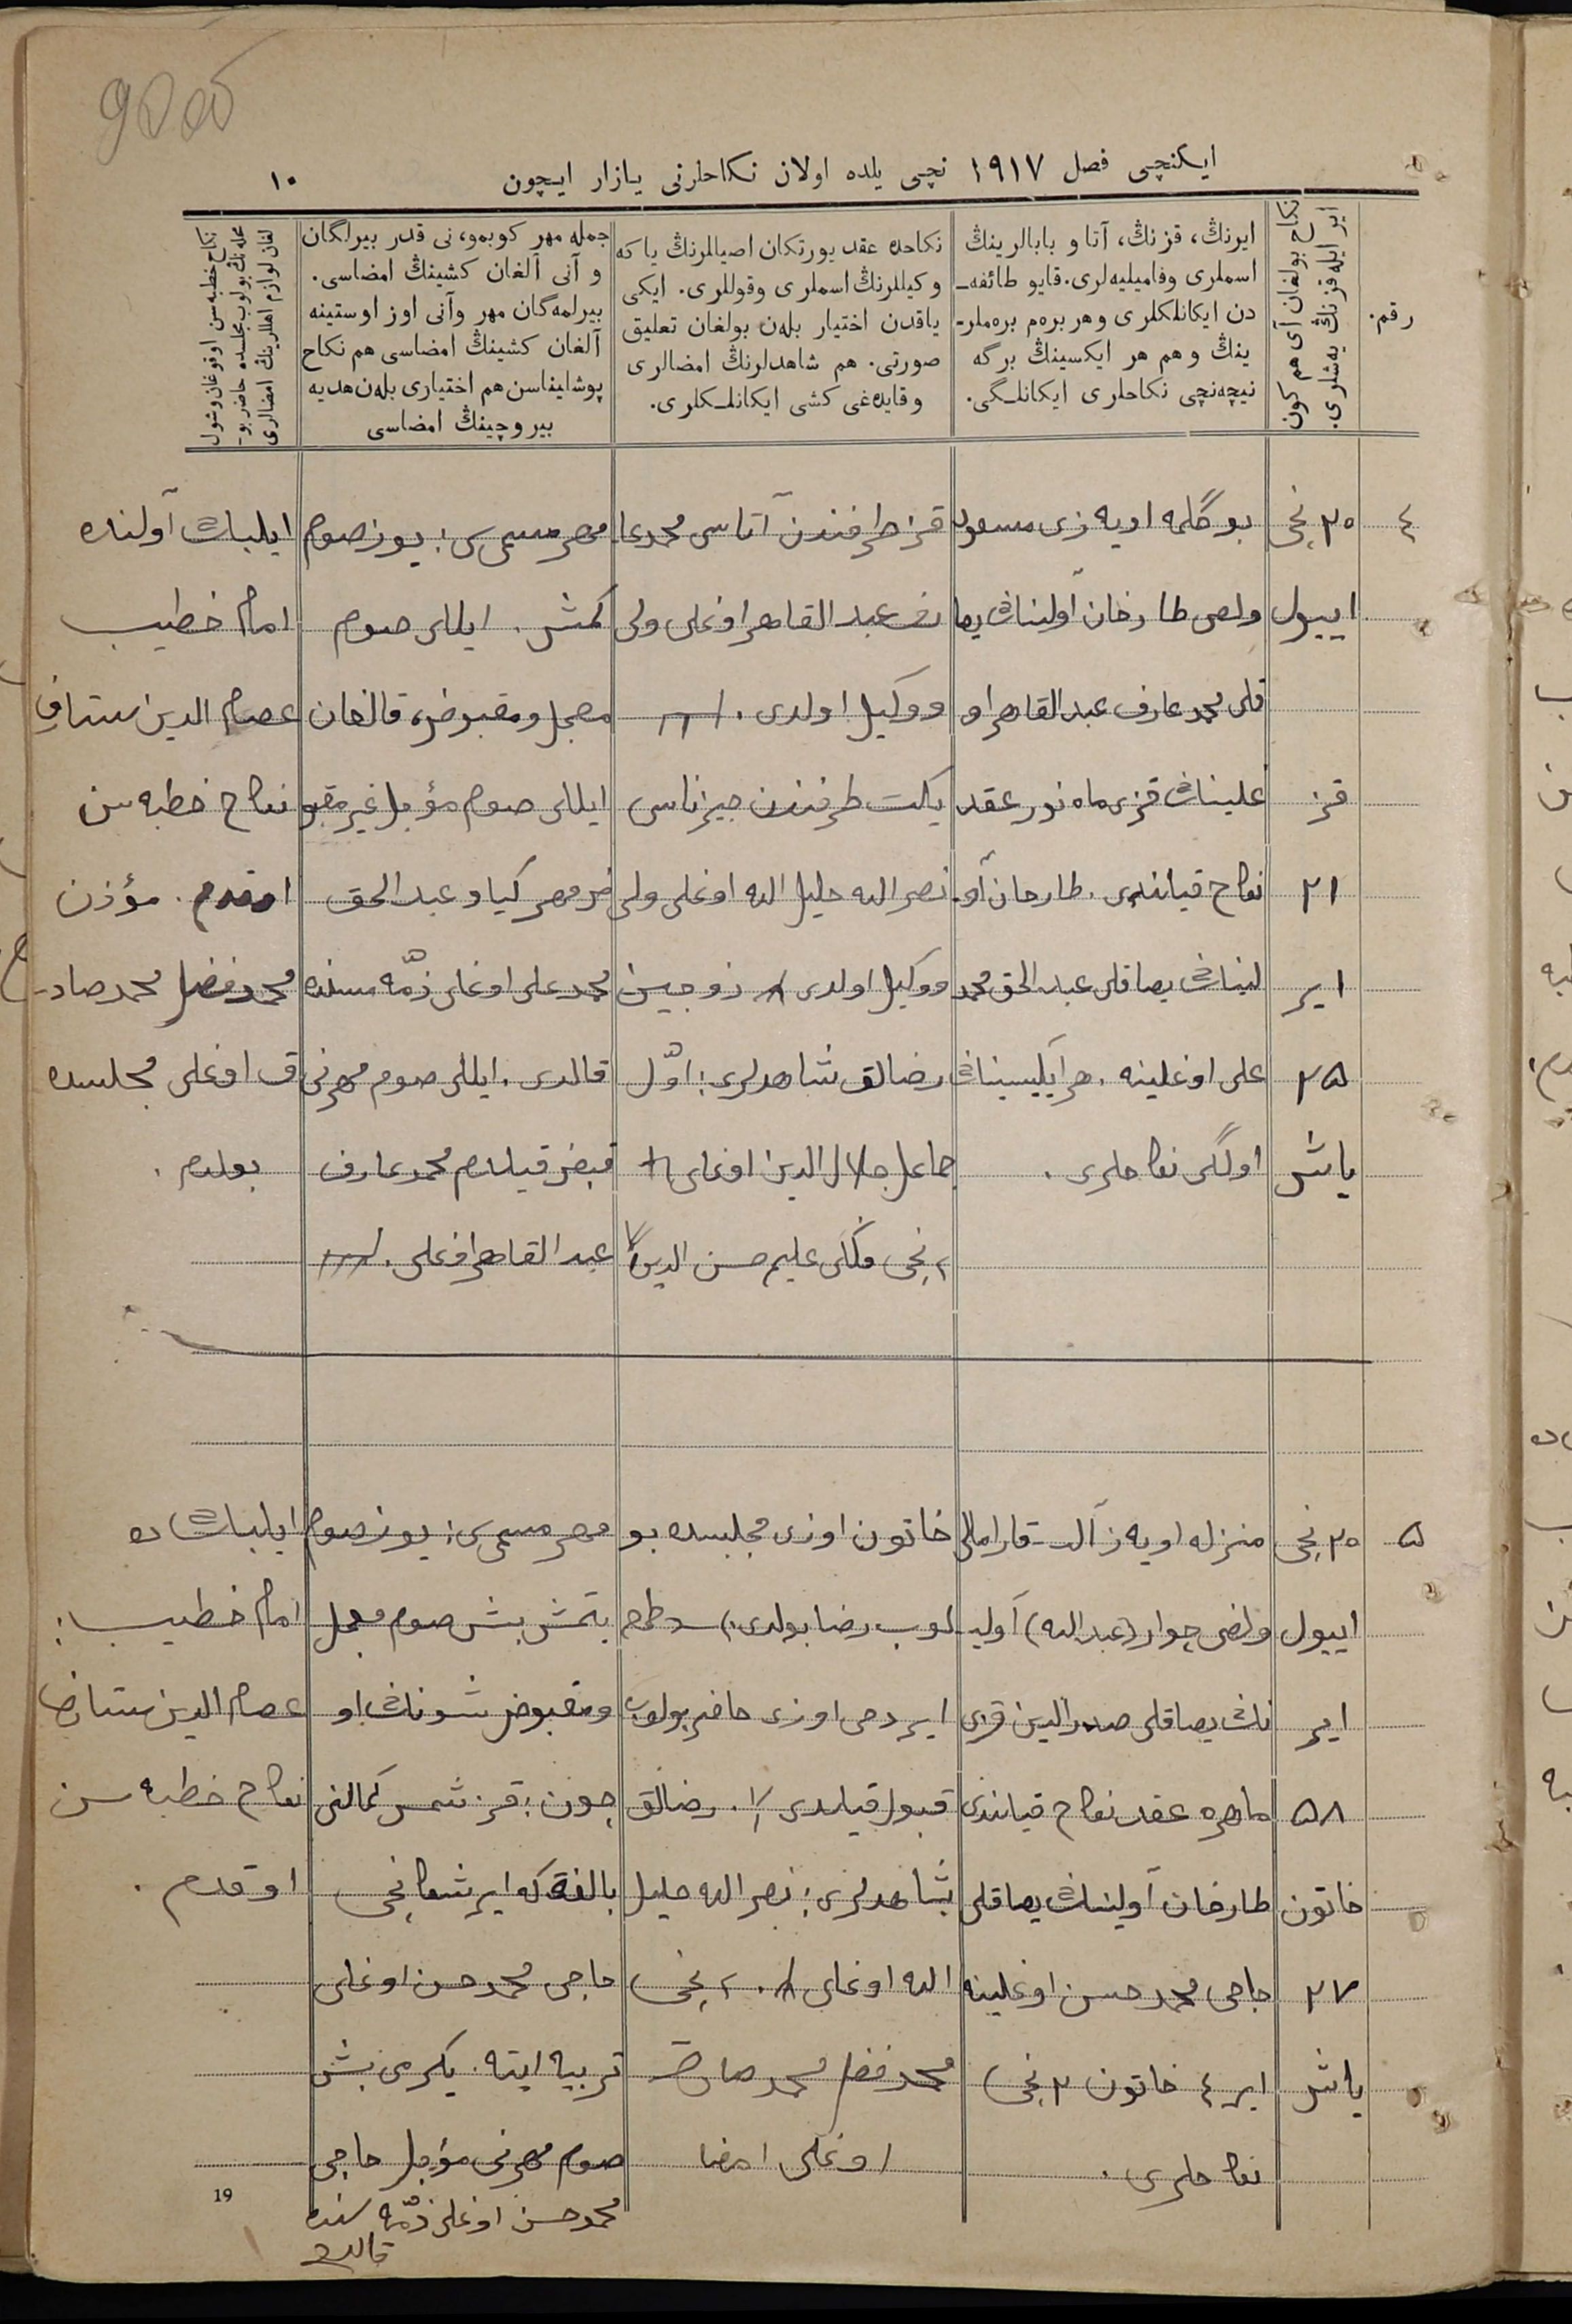 ایکنچی فصل ١٩١٧ نچی یلده اولان نکاحلرنی یازار ایچون
١٠
رقم.
نکاح بولغان آی هم کون
ایر ایله قزنڭ یه‌شلری.
ایرنڭ، قزنڭ، آتا و بابالرینڭ
اسملری وفامیلیه‌لری. قایو طائفه‌ـ
دن ایکانلکلری و هر بره‌م بره‌ملرـ
ینڭ و هم هر ایکسینڭ برگه
نیچه‌نچی نکاحلری ایکانلـگی.
نکاحده عقد یورتکان اصیللرنڭ یا که
وکیللرنڭ اسملری وقوللری. ایکی
یاقدن اختیار بله‌ن بولغان تعلیق
صورتی. هم شاهدلرنڭ امضالری
و قایده‌غی کشی ایکانلـکلری.
جمله مهر کوبمو، نی قدر بیرلگان
و آنی آلغان کشینڭ امضاسی.
بیرلمه‌گان مهر وآنی اوز اوستینه
آلغان کشینڭ امضاسی هم نکاح
پوشلیناسن هم اختیاری بله‌ن هدیه
بیروچینڭ امضاسی
نکاح خطبه‌سن اوقوغان وشول
محله‌نڭ بولوب مجلسده حاضر بوـ
لغان لوازم اهللرینڭ امضالری
٤
٢٠ نجی
اییول
قز
٢١
ایر
٢٥
یاش
بوگلمه اویه‌زی مسعود
ولصی طارخان آولیناڭ یصا
قلی محمد عارف عبد القاهر او
غلیناڭ قزی ماه نور عقد
نکاح قیلندی. طارخان آو
لیناڭ یصاقلی عبد الحق محمد
علی اوغلینه. هر ایکیسیناڭ
اولگی نکاحلری.
قز طرفندن آتاسی محمد عا
رف عبد القاهر اوغلی ولی
و وکیل اولدی.
یکت طرفندن جیزناسی
نصر الله خلیل الله اوغلی ولی
و وکیل اولدی زوجین
رضالق شاهدلری: اوّل
جلال الدین اوغلی
٢ نجی علیم حسن الدین
مهر مسمی سی: یوز صوم
کمش. ایللی صوم
معجل و مقبوض، قالغان
ایللی صوم مؤجل غیر مقبو
ض مهر کیاو عبد الحق
محمد علی اوغلی ذمّه سنده
قالدی. ایللی صوم مهرنی
قبض قیلدم محمد عارف
عبد القاهر اوغلی.
آولنده
امام خطیب
عصام الدین
نکاح خطبه سن
اوقدم. مؤذن
محمد فضل محمد صادـ
ق اوغلی مجلسده
بولدم.
٥
٢٠ نجی
اییول
ایر
٥٨
خاتون
٢٧
یاش
منزله اویه‌ز
ولصی (عبد الله) آولیـ
ناڭ یصاقلی صدر الدین قزی
ماهره عقد نکاح قیلندی
طارخان آولیناڭ یصاقلی
حاجی محمد حسن اوغلینه
ایر ٤ خاتون ٢ نجی
نکاحلری.
خاتون اوزی مجلسده بو
لوب رضا بولدی.
ایر دحی اوزی حاضر بولوب
قبول قیلدی. رضالق
شاهدلری: نصر الله خلیل
الله اوغلی. ٢ نجی
محمد فضل محمد صادق
اوغلی امضا
مهر مسمی سی: یوز صوم
یتمش بش صوم معجل
و مقبوض شوناڭ او
چون: قز شمس کمالنی
بالغه که ایرشکانجی
حاجی محمد حسن اوغلی
تربیه ایته. یکرمی بش
صوم مهرنی مؤجل حاجی
محمد حسن اوغلی ذمّه سنده
قالدی
امام خطیب:
عصام الدین
نکاح خطبه سن
اوقدم.
19